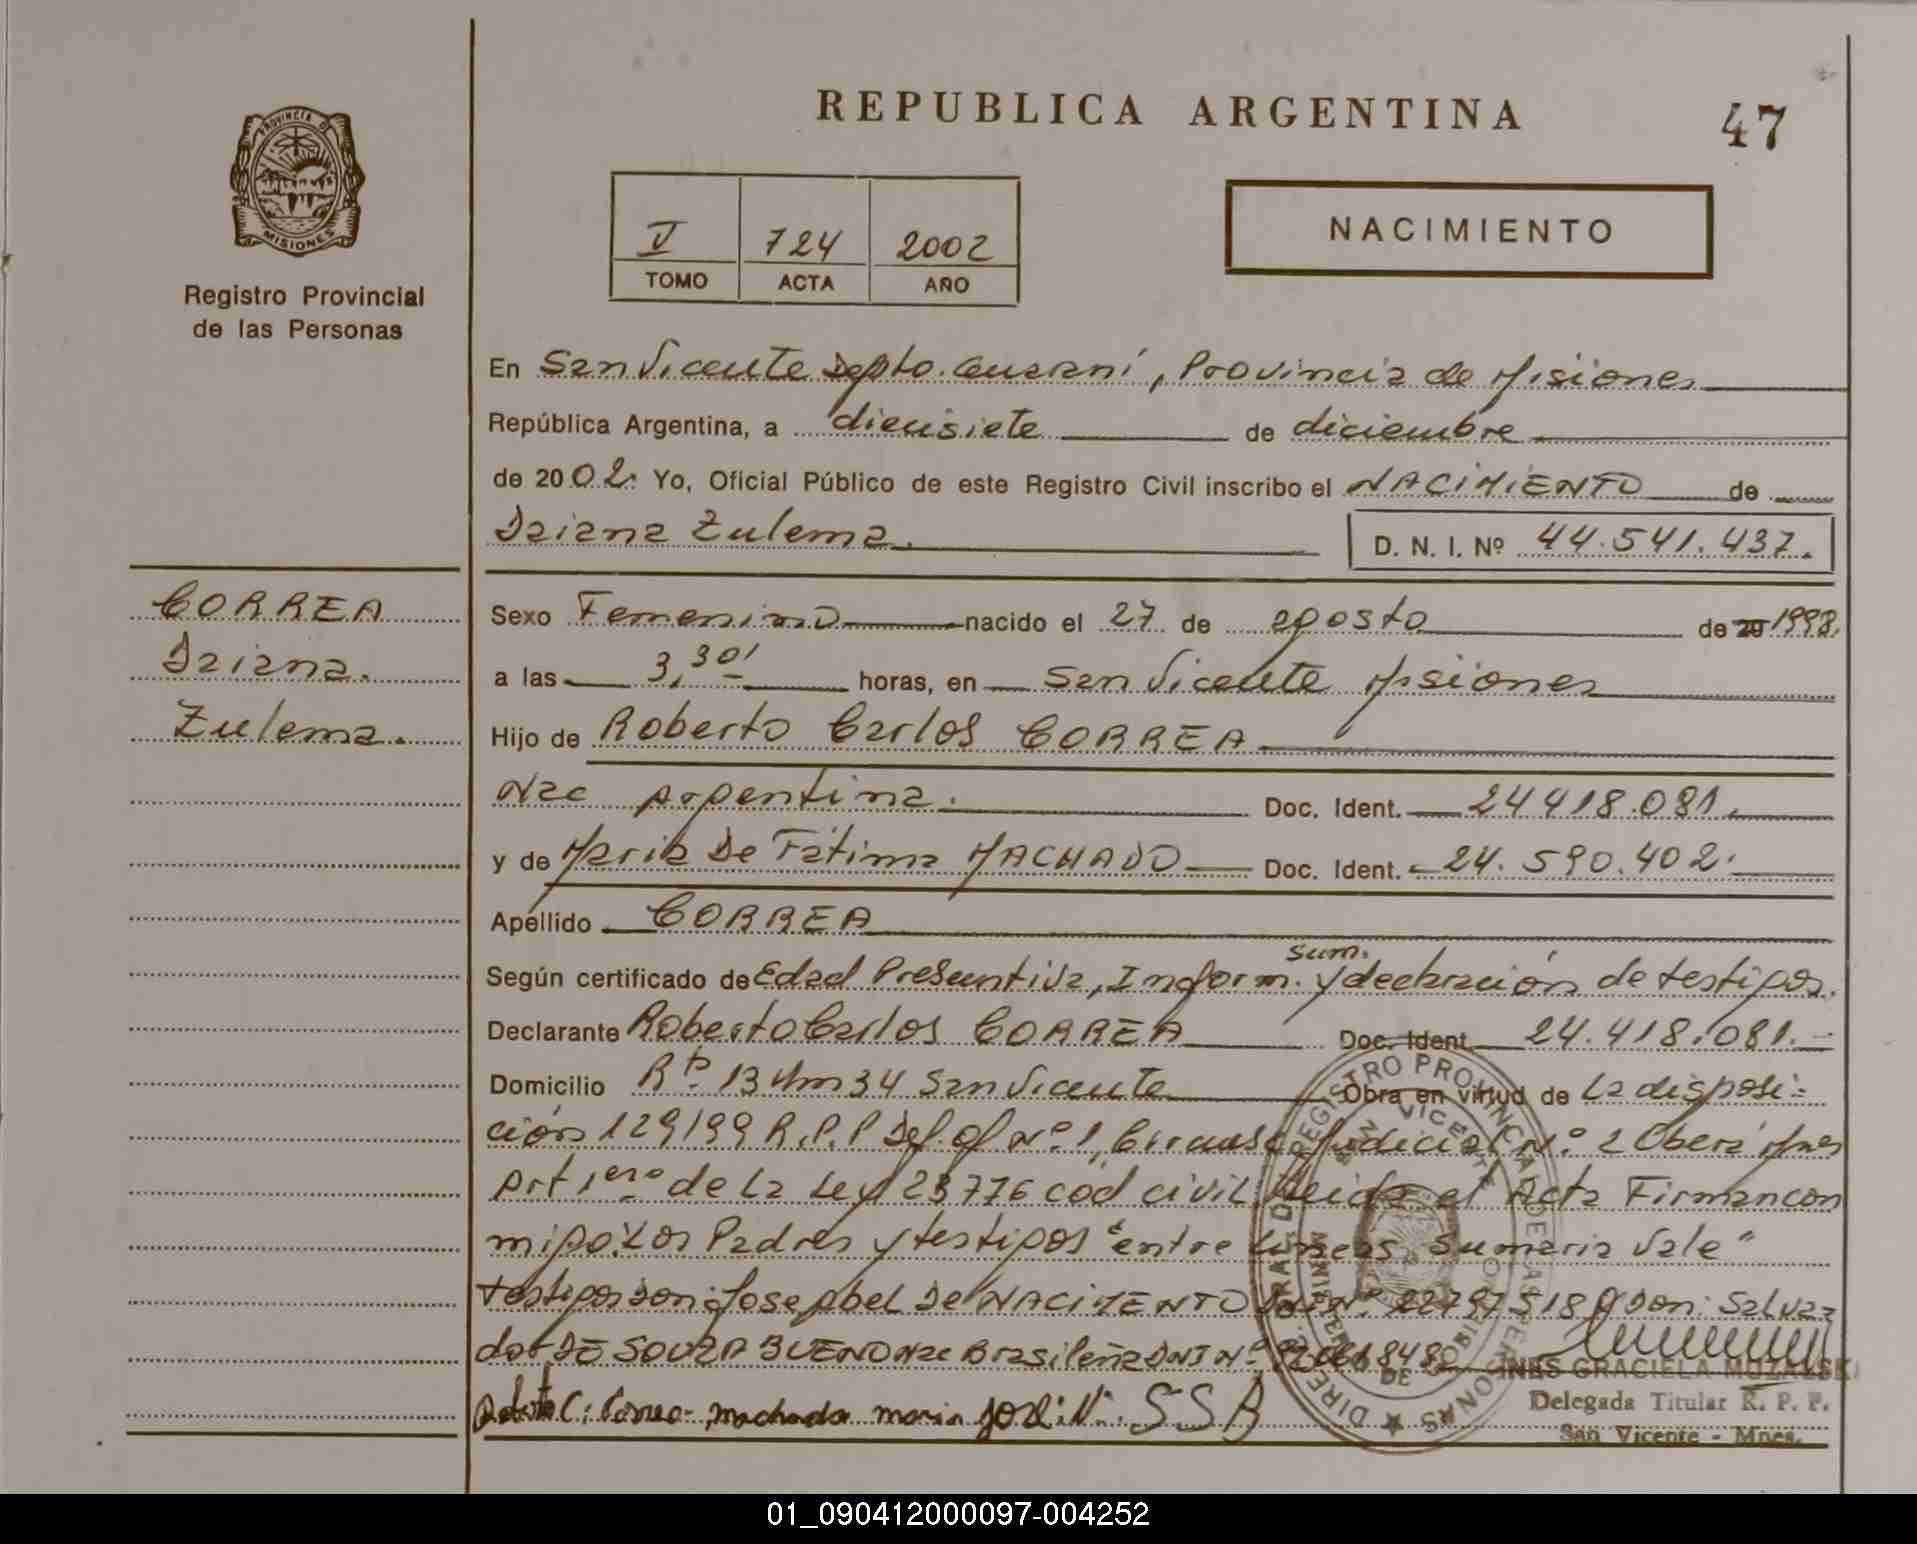 REPUBLICA ARGENTINA
47
PROVINCIA D
MISIONES
Registro Provincial
de las Personas
V 724 2002
TOMO ACTA AÑO
NACIMIENTO
En San Vicente Depto. Guaraní, Provincia de Misiones
República Argentina, a diecisiete de diciembre
de 2002. Yo, Oficial Público de este Registro Civil inscribo el NACIMIENTO de
Daiana Zulema.
D. N. I. Nº 44.541.437.
CORREA
Daiana.
Zulema.
Sexo Femenino nacido el 27 de agosto de 20 1998.
a las 3,30' horas, en San Vicente Misiones
Hijo de Roberto Carlos CORREA
Nac Argentina. Doc. Ident. 24418.081.
y de Maria De Fátima MACHADO Doc. Ident. 24.590.402.
Apellido CORREA
Sum.
Según certificado de Edad Presuntiva, Inform. y declaración de testigos.
Declarante Roberto Carlos CORREA Doc. Ident. 24.418.081.
Domicilio Rta. 13 Km 34 San Vicente Obra en virtud de La disposi-
ción 129/99 R.P.P Def. of Nº 1, Circunsc Judicial Nº 2 Oberá Mnes
Art 1ero de La Ley 23776 cod civil Leida el Acta Firman con
migo: Los Padres y testigos "entre Lineas Sumaria Vale"
testigos son: Jose Abel De NACIMENTO DNI Nº 22797518 y Don: Salva
dor DE SOUZA BUENO Nac Brasileña DNI Nº 848
C: Correa machado maria José N. S S B
DIRECCION GRAL. DEL REGISTRO PROVINCIAL DE LAS PERSONAS
SAN VICENTE
MINISTERIO DE GOBIERNO
INES GRACIELA
Delegada Titular R. P. P.
San Vicente - Mnes.
01_090412000097-004252